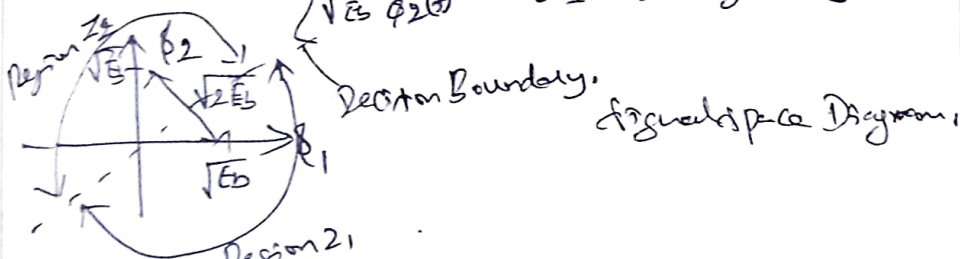 √Eb φ2(t)
Region Z2
√Eb
φ2
√2Eb
Decision Boundary.
Signal space Diagram.
φ1
√Eb
Region Z1